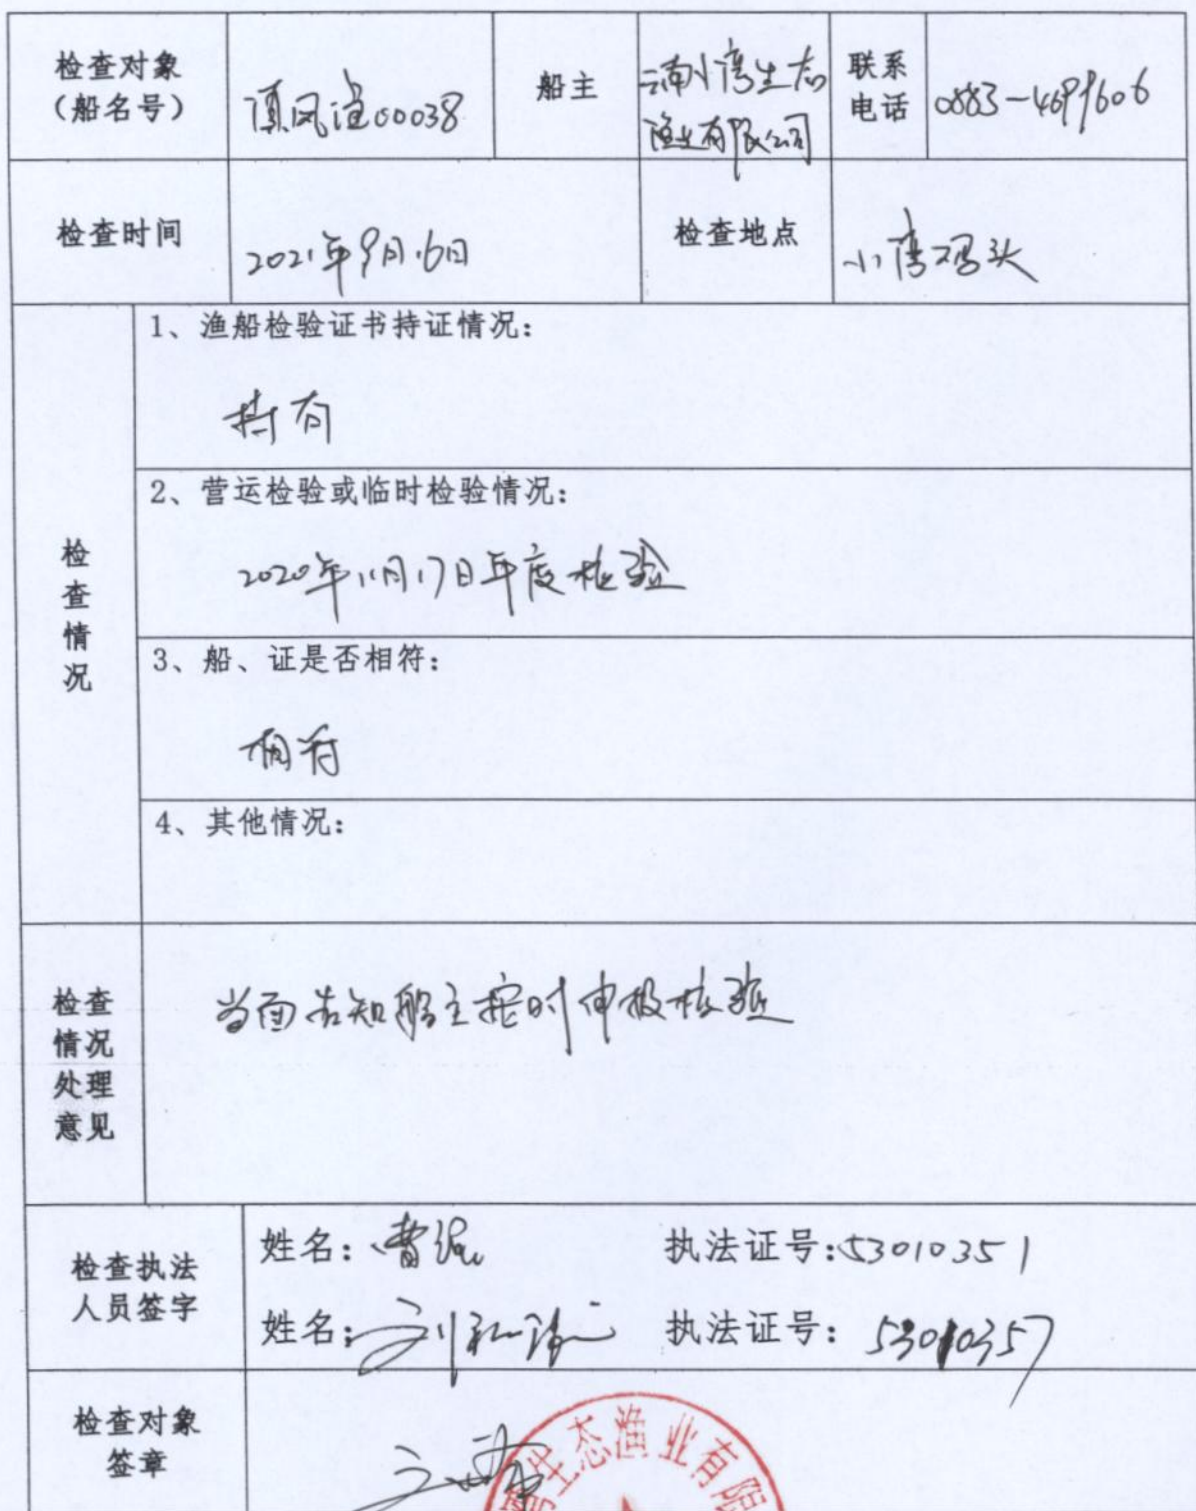 检查对象
（船名号）
滇凤渔00038
船主
云南小湾生态
渔业有限公司
联系
电话
0883-4699606
检查时间
2021年9月16日
检查地点
小湾码头
检查情况
1、渔船检验证书持证情况：
持有
2、营运检验或临时检验情况：
2020年11月17日年度检验
3、船、证是否相符：
相符
4、其他情况：
检查
情况
处理
意见
当面告知船主按时申报检验
检查执法
人员签字
姓名：曹
执法证号：53010351
姓名：刘
执法证号：53010357
检查对象
签章
湾生态渔业有限